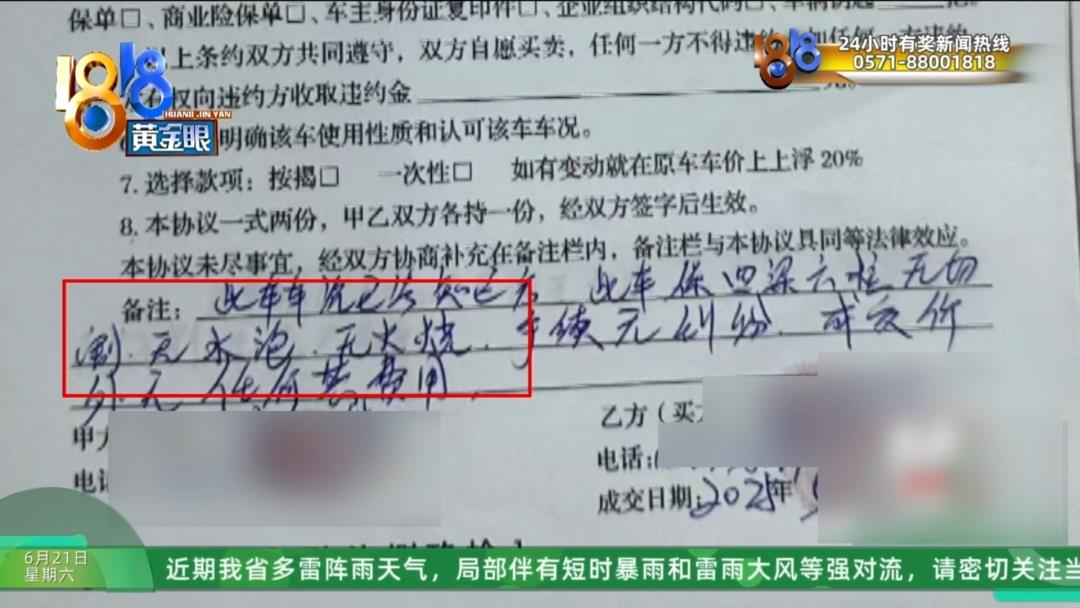 保单□、商业险保单□、车主身份证复印件□、企业组织结构代码□、
上条约双方共同遵守，双方自愿买卖，任何一方不得违约
权向违约方收取违约金
明确该车使用性质和认可该车车况。
7. 选择款项：按揭□ 一次性□ 如有变动就在原车车价上上浮 20%
8. 本协议一式两份，甲乙双方各持一份，经双方签字后生效。
本协议未尽事宜，经双方协商补充在备注栏内，备注栏与本协议具同等法律效应。
备注：此车车况已告知乙方 此车保四梁六柱无切
割.无水泡.无火烧.手续无纠纷.成交价
外无任何其费用.
甲方
乙方（买
电话
电话:
成交日期:2025年
1818
HUANG JIN YAN
黄金眼
1818
24小时有奖新闻热线
0571-88001818
6月21日
星期六
近期我省多雷阵雨天气，局部伴有短时暴雨和雷雨大风等强对流，请密切关注当